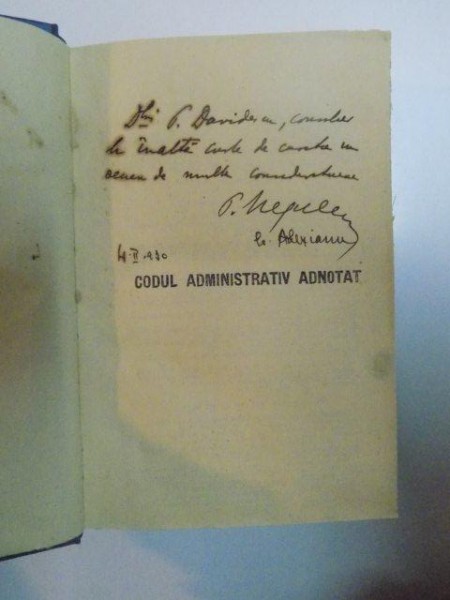 Dlui P. Davidescu, consilier
la înaltă curte de casație cu
semn de multă considerațiune
P. Negulescu
G. Alexianu
4·II·930
CODUL ADMINISTRATIV ADNOTAT